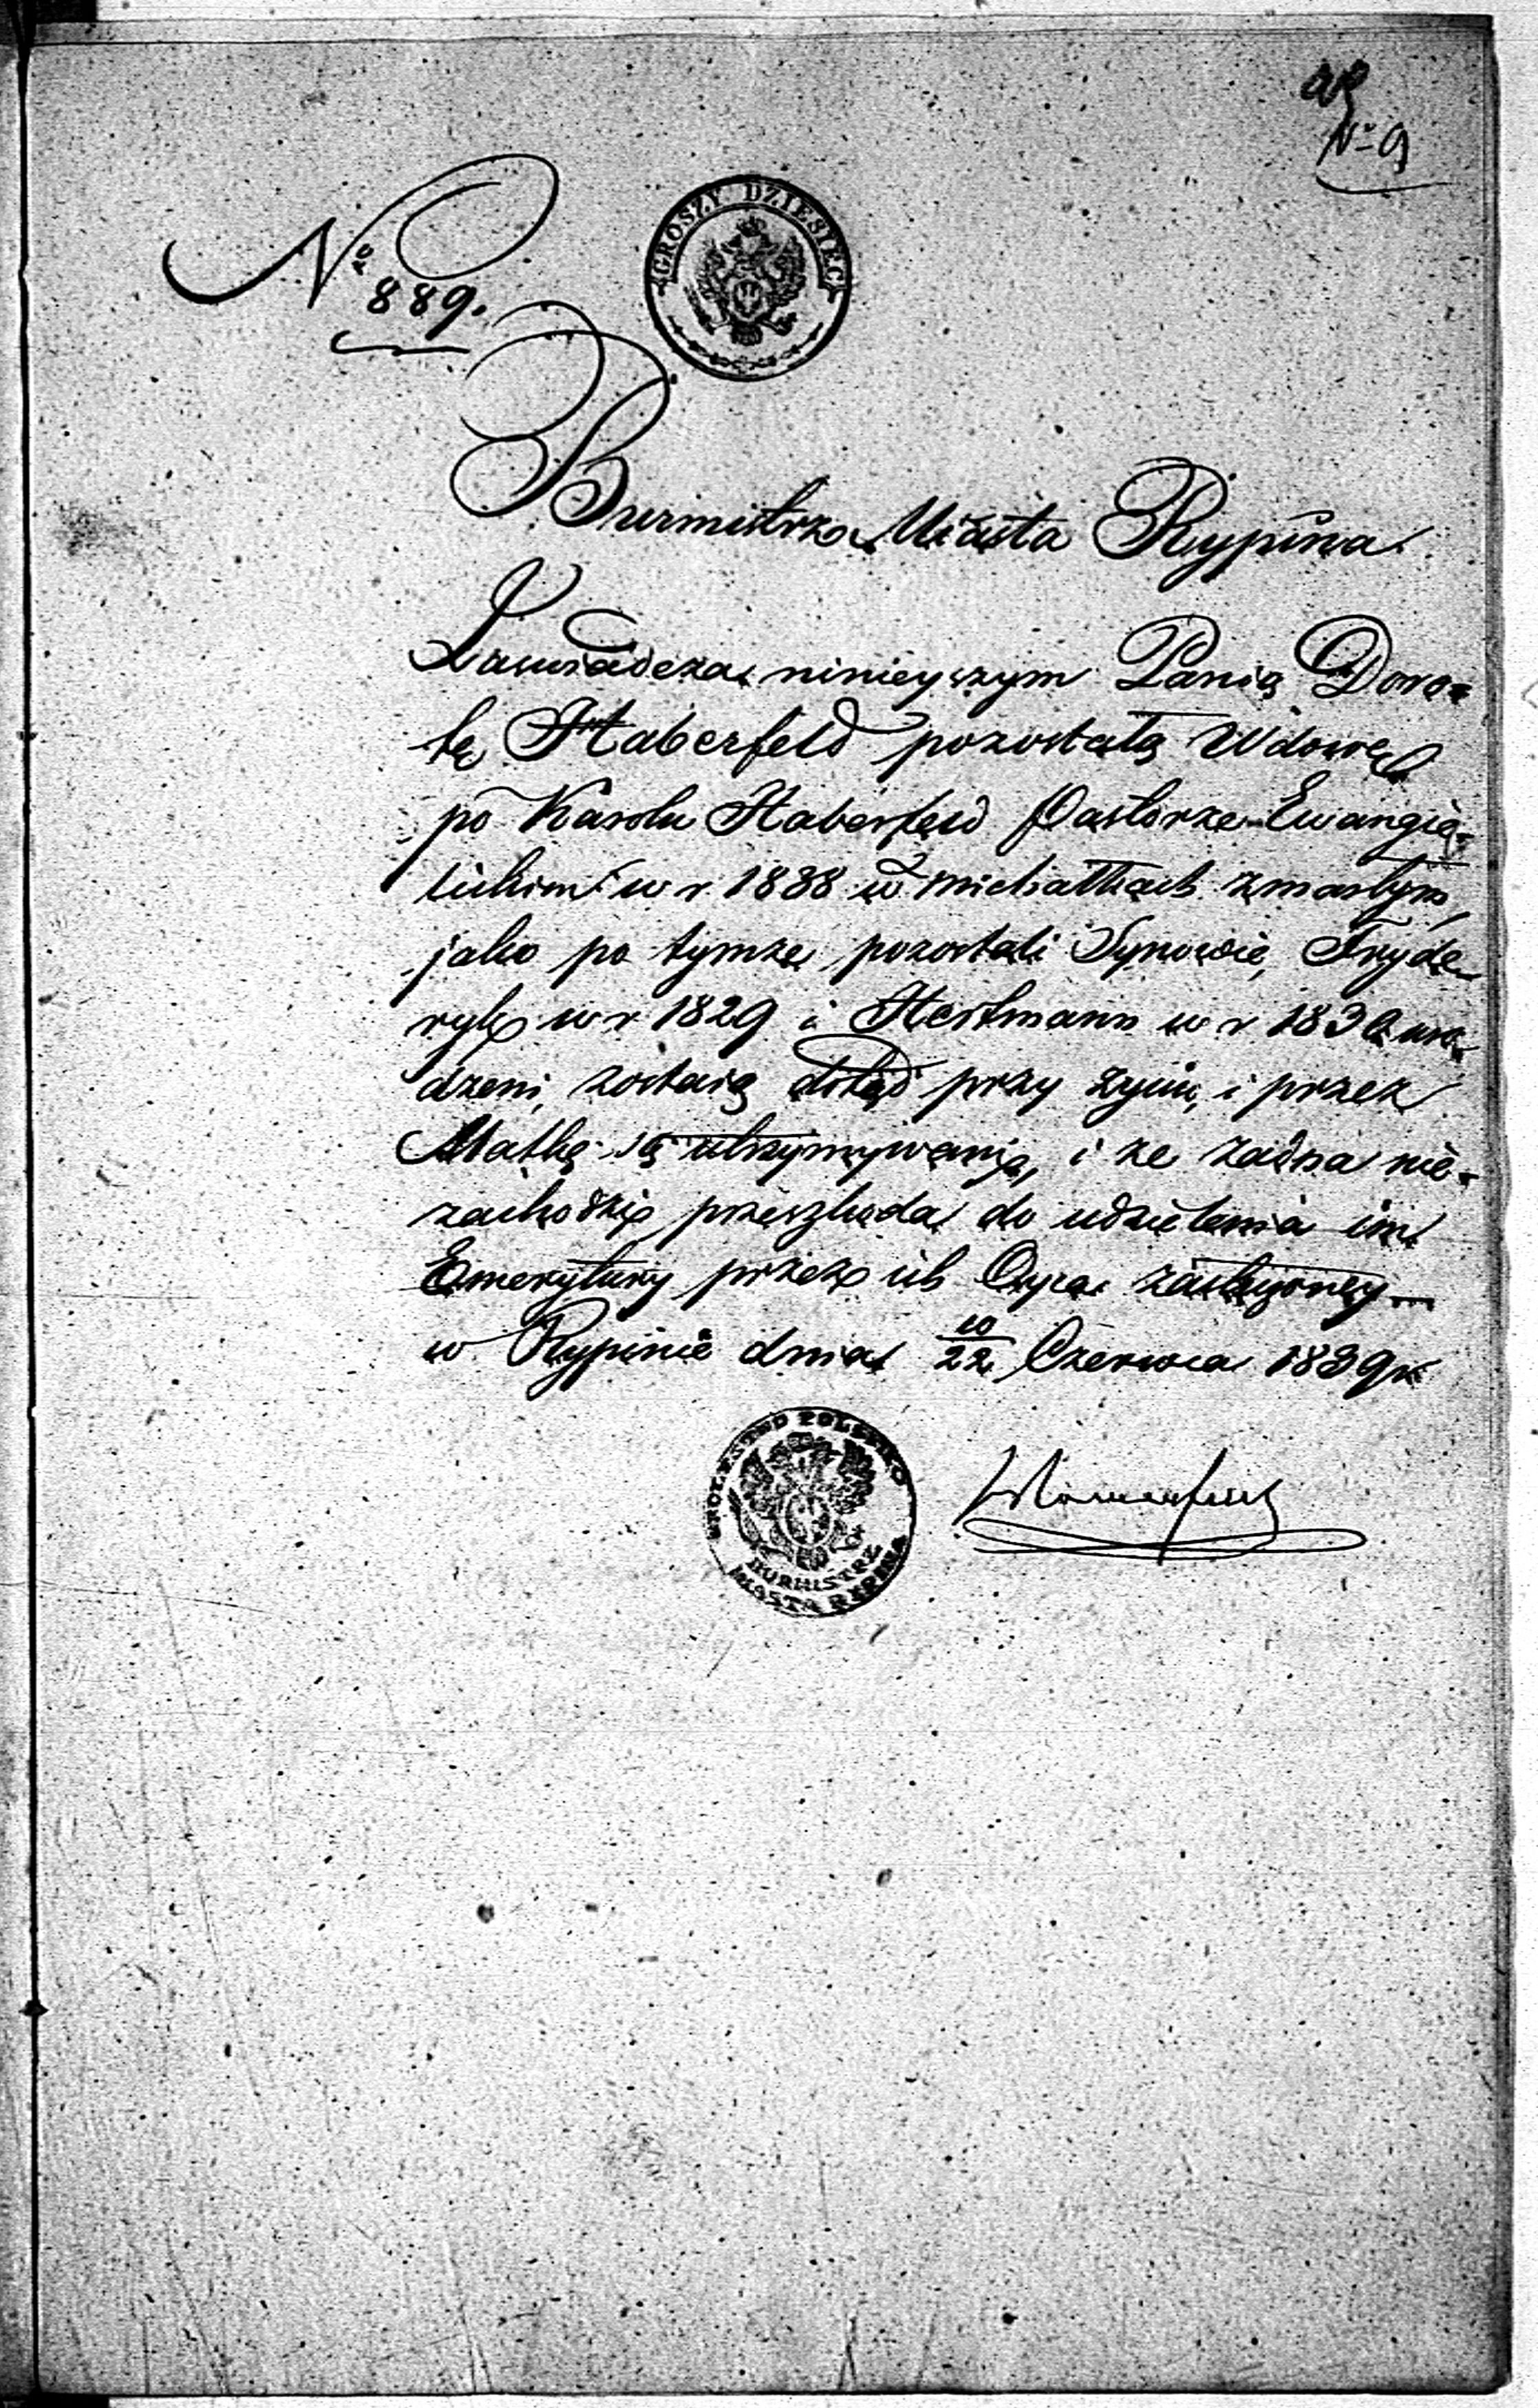 № 9
GROSZY DZIESIĘĆ
№ 889.
Burmistrz Miasta Rypina
Zaświadcza ninieyszym Panią Doro=
tę Haberfeld pozostałą Wdowę
po Karolu Haberfeld Pastorze Ewangie=
lickim w r. 1838 w Michałkach zmarłym,
jako po tymże pozostali Synowie, Fryde
ryk w r 1829 i Hertmann w r 183 uro=
dzeni, zostaią dotąd przy życiu, i przez
Matkę są utrzymywani, i że żadna nie=
zachodzi przeszkoda do udzielenia im
Emerytury przez ich Oyca zasłużoney
w Rypinie dnia 10/22 Czerwca 1839 r
KROLESTWO POLSKIE
BURMISTRZ
MIASTA RYPINA